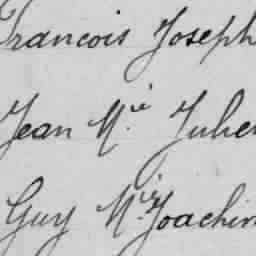 Francois Joseph
Jean M.ie Julien
Guy M.ie Joachim